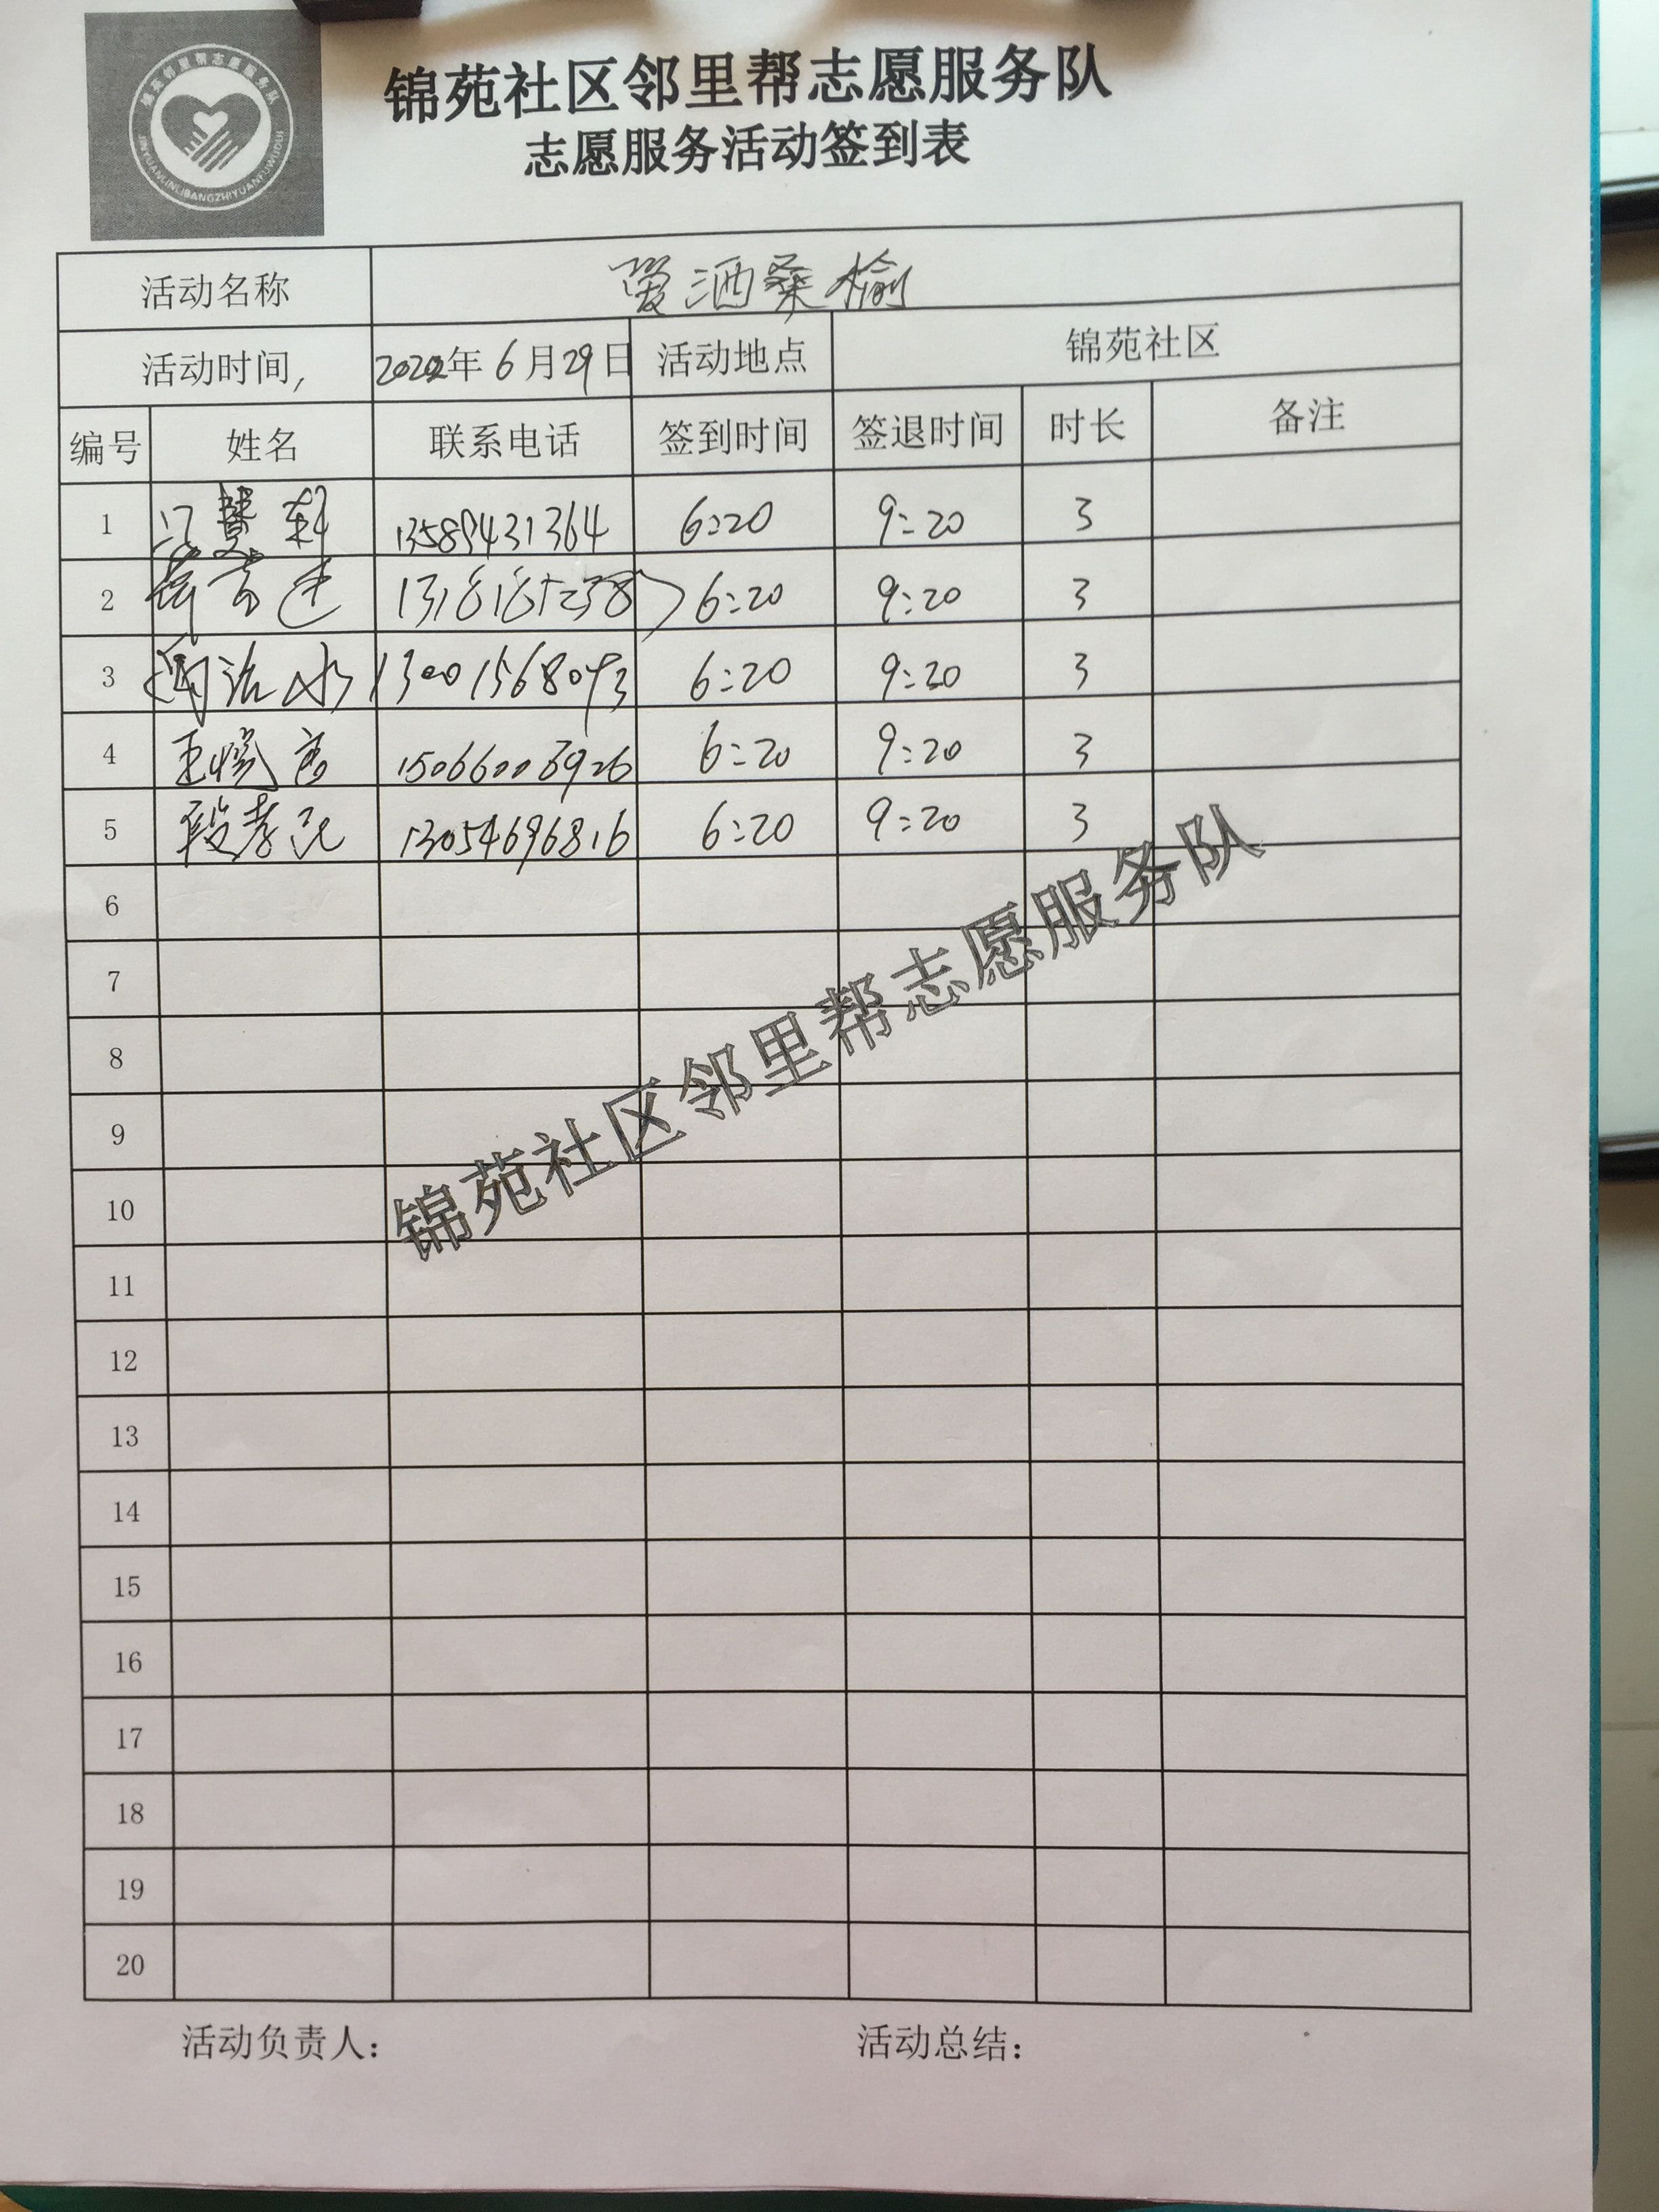 锦苑邻里帮志愿服务队
JINYUANLINLIBANGZHIYUANFUWUDUI
锦苑社区邻里帮志愿服务队
志愿服务活动签到表
活动名称 爱洒桑榆
活动时间, 2022年 6 月 29 日 活动地点 锦苑社区
编号 姓名 联系电话 签到时间 签退时间 时长 备注
1 13589431364 6:20 9:20 3
2 6:20 9:20 3
3 6:20 9:20 3
4 6:20 9:20 3
5 段孝民 13054696816 6:20 9:20 3
6
7
8
9
10
11
12
13
14
15
16
17
18
19
20
锦苑社区邻里帮志愿服务队
活动负责人: 活动总结: